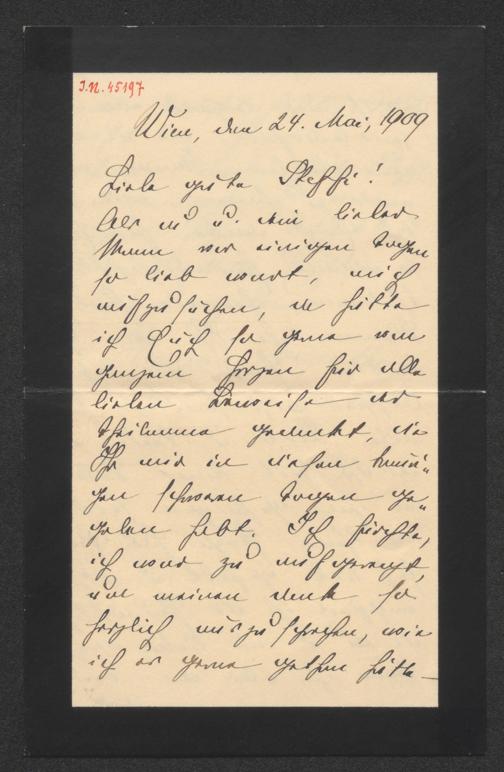 I.N. 45197
Wien, den 24. Mai, 1909
Liebe gute Steffi!
Als du u. dein lieber
Mann vor einigen Tagen
so lieb waret, mich
aufzusuchen, da hätte
ich Euch so gerne von
ganzem Herzen für alle
lieben Beweise der
Theilnahme gedankt, die
Ihr mir in diesen trauri-
gen schweren Tagen ge-
geben habt. Ich fürchte,
ich war zu aufgeregt,
um meinen Dank so
herzlich auszusprechen, wie
ich es gerne gethan hätte –